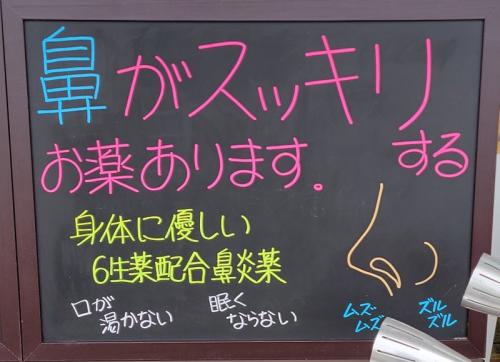 鼻がスッキリ
する
お薬あります。
身体に優しい
6生薬配合鼻炎薬
口が
渇かない
眠く
ならない
ムズ
ムズ
ズル
ズル